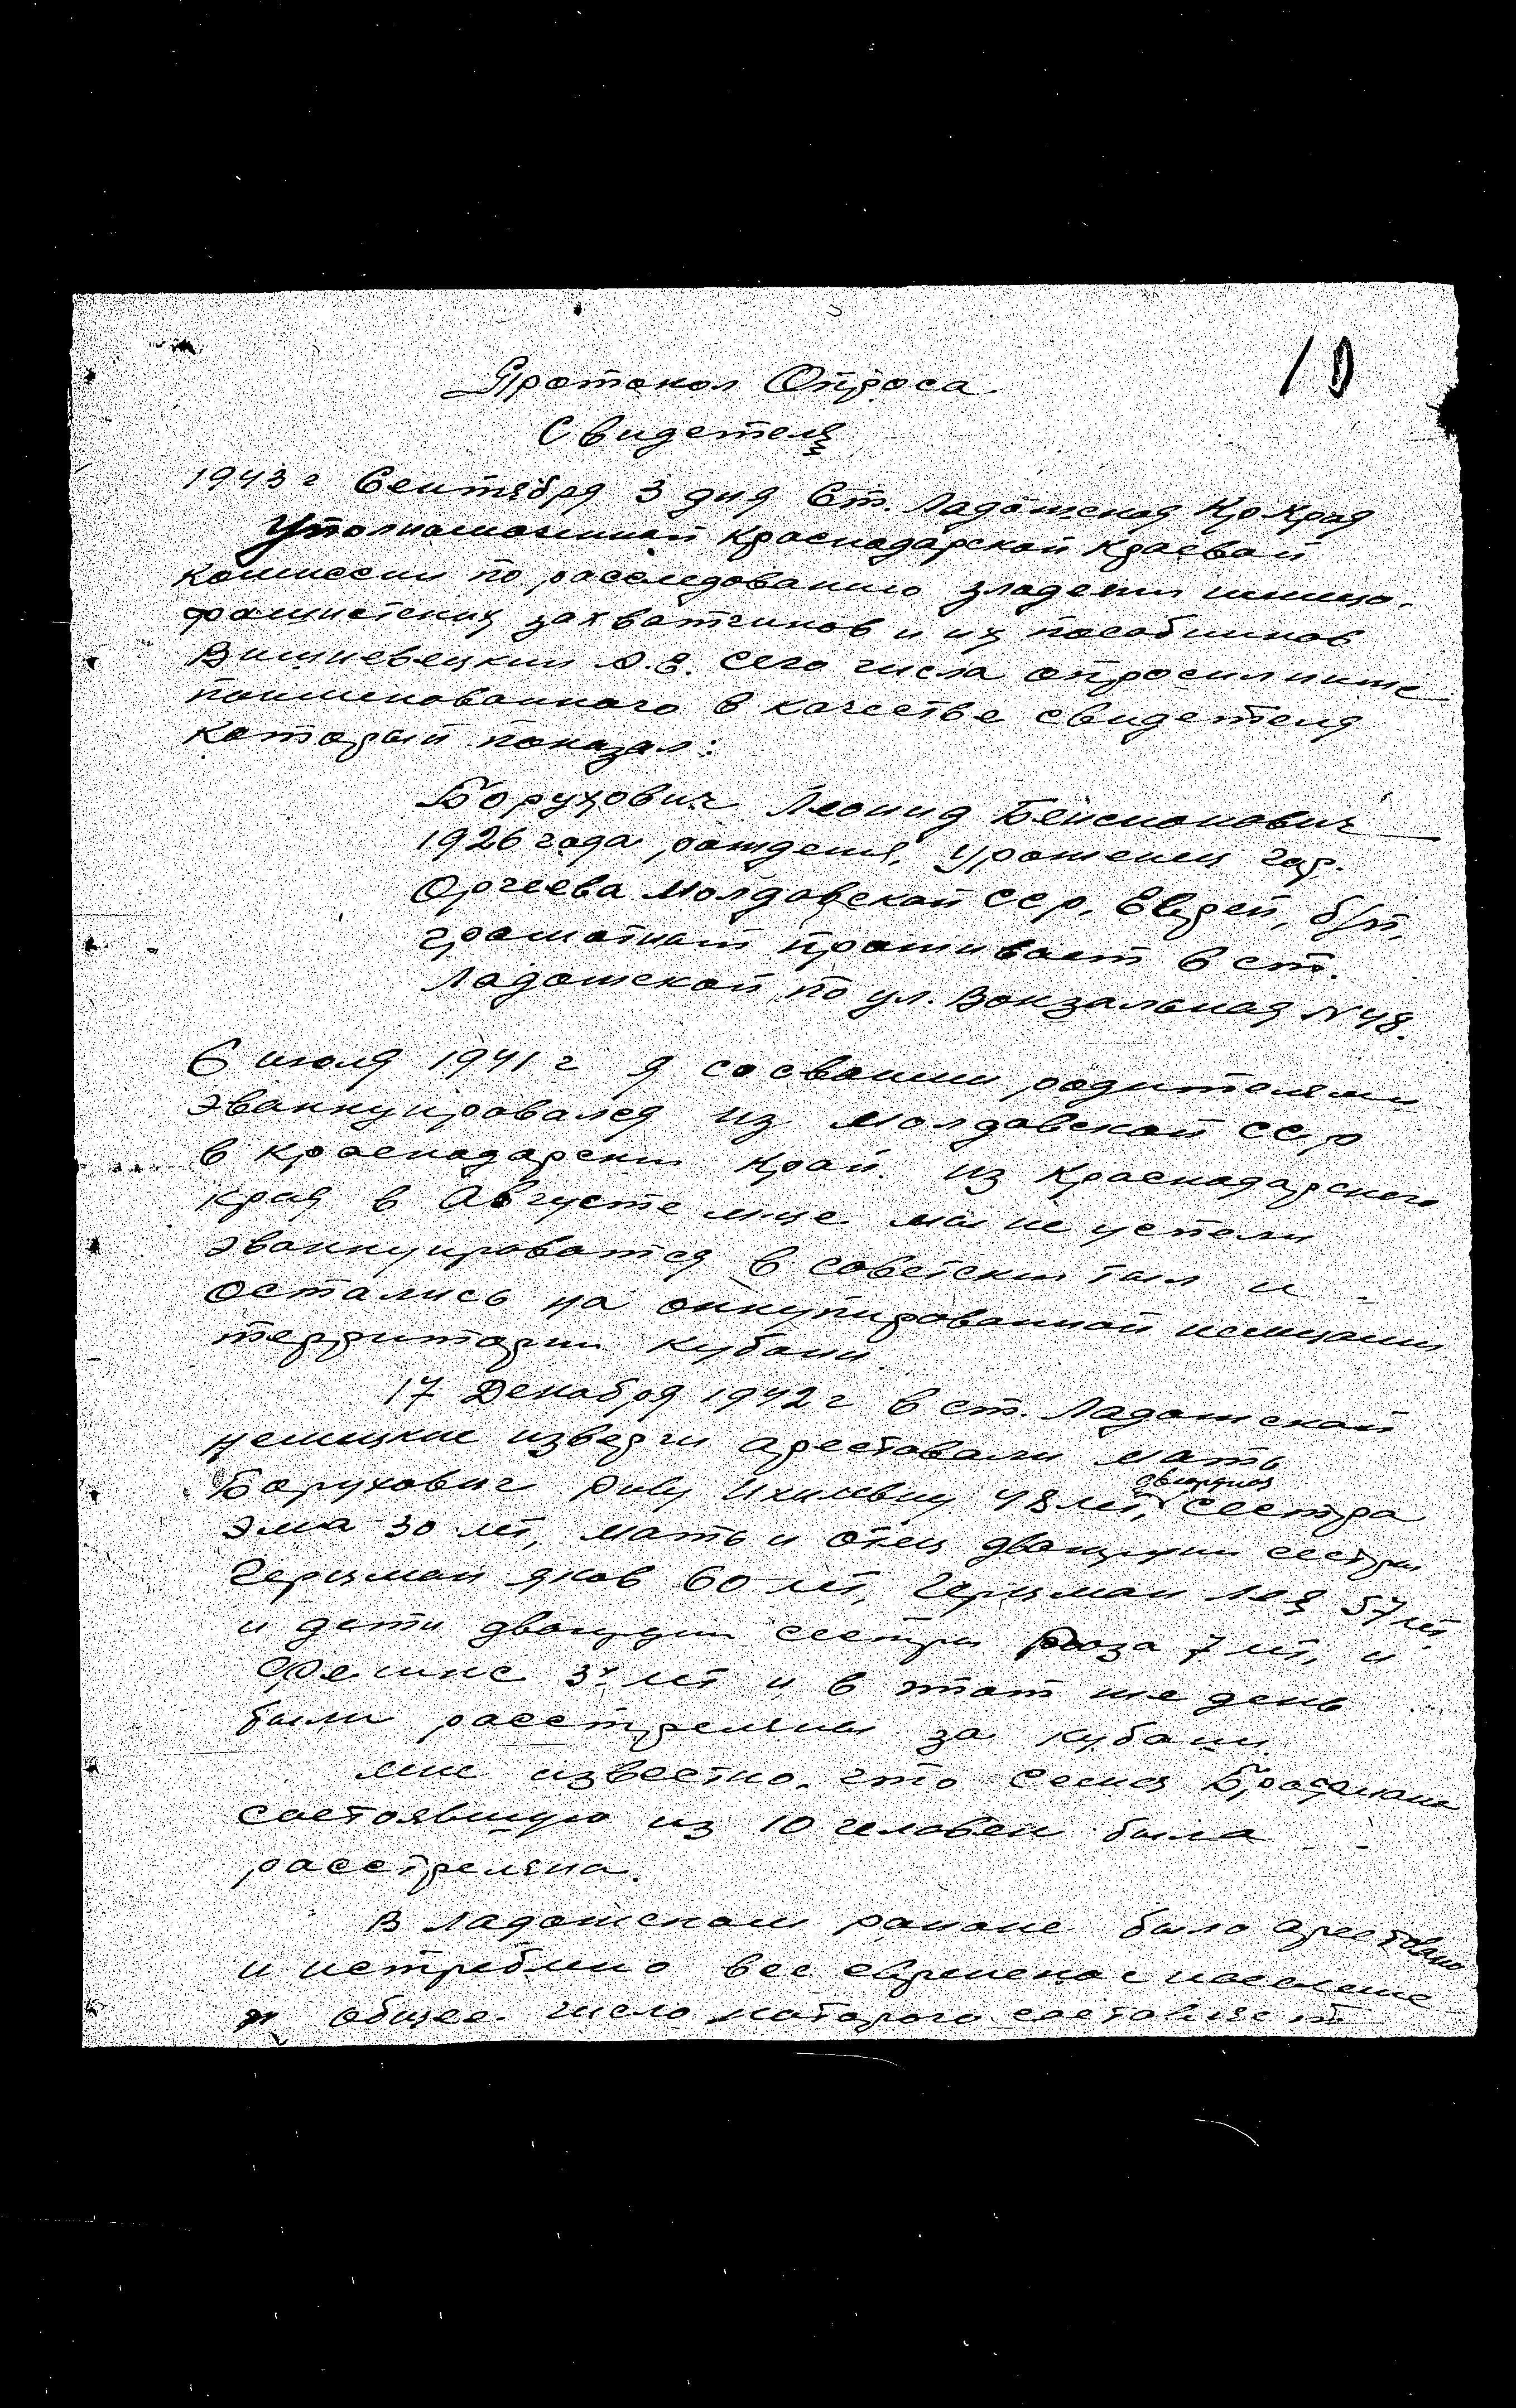 10
Протокол Опроса
Свидетеля
1943 г Сентября 3 дня Ст. Ладожская Кр Края
Уполномоченный Краснодарской Краевой
комиссии по расследованию злодеяни немецко-
фашистских захватчиков и их пособников
Вишневецкий сего числа опросил ниже
поименованного в качестве свидетеля
который показал:
Борухович Леонид Бенсионович
1926 года рождения, уроженец гор.
Оргеева Молдавской ССР, Еврей, б/п,
грамотный проживает в ст.
Ладожской по ул. Вокзальная № 48.
6 июля 1941 г я со своими родителями
эваккуировался из Молдавской ССР
в Краснодарский Край. из Краснодарского
края в Августе м-це мы не успели
эваккуироватся в советский тыл и
остались на оккупированной немцами
территории Кубани.
17 Декабря 1942 г в ст. Ладожской
немецкие изверги арестовали мать
двоюрная
Борухович Риву 48 лет, сестра
Эма 30 лет, мать и отец двоюрдни сестры
Герцман Яков 60 лет, Герцман 57 лет,
и дети двоюрдни сестры Роза 7 лет, и
3х лет и в этот же день
были расстреляны за Кубани.
мне известно, что семья
состоявшую из 10 человек была
расстреляна.
В Ладожском районе было арестовано
и истреблено все еврейское население
общее число которого составляет